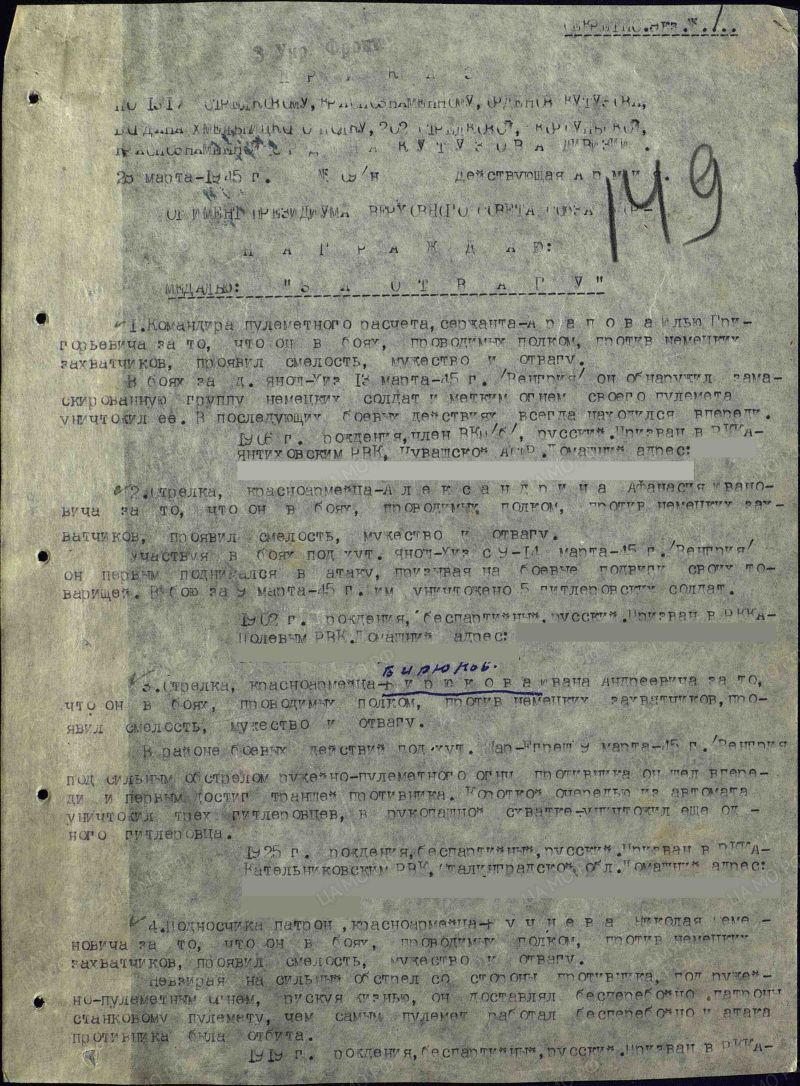 3 Укр. Фронт
П Р И К А З
СТРЕЛКОВОМУ, КРАСНОЗНАМЕННОМУ, ОРДЕНОВ КУТУЗОВА,
БОГДАНА ХМЕЛЬНИЦКОГО ПОЛКУ, 202 СТРЕЛКОВОЙ, КОРСУНЬСКОЙ,
КРАСНОЗНАМЕННОЙ ОРДЕНА К У Т У З О В А ДИВИЗИИ.
марта-1945 г. № 09/н Действующая А р м и я.
149
ОТ ИМЕНИ ПРЕЗИДИУМА ВЕРХОВНОГО СОВЕТА СОЮЗА
Н А Г Р А Ж Д А Ю:
МЕДАЛЬЮ: "З А О Т В А Г У"
1.Командира пулеметного расчета, сержанта-А р а п о в а Илью Гри-
горьевича за то, что он в боях, проводимых полком, против немецких
захватчиков, проявил смелость, мужество и отвагу.
В боях за д. Яношт-Уиз марта-45 г. /Венгрия/ он обнаружил зама-
скированную группу немецких солдат и метким огнем своего пулемета
уничтожил её. В последующих боевых действиях всегда находился впереди.
1906 г. рождения, член ВКП/б/, русский. Призван в РККА-
Янтиховским РВК, Чувашской АССР. Домашний адрес:
2.Стрелка, красноармейца-А л е к с а н д р и н а Афанасия Ивано-
вича за то, что он в боях, проводимых полком, против немецких зах-
ватчиков, проявил смелость, мужество и отвагу.
Участвуя в боях под хут. Яношт-Уиз с 9-14 марта-45 г. /Венгрия/
он первым поднимался в атаку, призывая на боевые подвиги своих то-
варищей. В бою за 9 марта-45 г. им уничтожено 5 гитлеровских солдат.
1902 г. рождения, беспартийный, русский. Призван в РККА-
Полевым РВК. Домашний адрес:
Бирюков.
3.Стрелка, красноармейца-Б у р ю к о в а Ивана Андреевича за то,
что он в боях, проводимых полком, против немецких захватчиков, про-
явил смелость, мужество и отвагу.
В районе боевых действий под хут. 9 марта-45 г. /Венгрия
под сильным обстрелом ружейно-пулеметного огня противника он шел впере-
ди и первым достиг траншей противника. Короткой очередью из автомата
уничтожил трех гитлеровцев, в рукопашной схватке-уничтожил еще од -
ного гитлеровца.
1925 г. рождения, беспартийный, русский. Призван в РККА-
Кательниковским РВК, Сталинградской обл. Домашний адрес:
4.Подносчика патрон, красноармейца- Николая Семе -
новича за то, что он в боях, проводимых полком, против немецких
захватчиков, проявил смелость, мужество и отвагу.
Невзирая на сильный обстрел со стороны противника, под ружей-
но-пулеметным огнем, рискуя жизнью, он доставлял бесперебойно патроны
станковому пулемету, чем самым пулемет работал бесперебойно и атака
противника была отбита.
1919 г. рождения, беспартийный, русский. Призван в РККА-